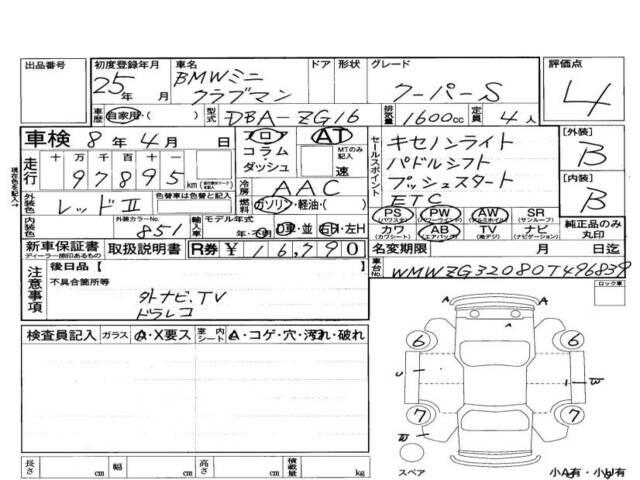 出品番号 初度登録年月 車名 ドア 形状 グレード 評価点
25年 月 BMWミニ クラブマン クーパーS 4
車歴 自家用・( ) 型式 DBA-ZG16 排気量 1600cc 定員 4人
車検 8年 4月 日 フロア AT セールスポイント キセノンライト [外装]
コラム MTのみ記入 パドルシフト B
走行 十 万 千 百 十 一 ダッシュ 速 プッシュスタート
97895 km 冷房 AAC ETC [内装]
外装色 レッドⅡ 色替車は色替と記入 燃料 ガソリン・軽油・( ) PS PW AW SR B
(パワステ) (パワーウィンド) (アルミホイル) (サンルーフ)
内装色 外装カラーNo. 851 輸入車 モデル年式 年・不明 D車・並 右H・左H カワ AB TV ナビ 純正品のみ丸印
(カワシート) (エアバッグ) (地デジ) (ナビゲーション)
新車保証書 取扱説明書 R券 ¥16,790 名変期限 月 日迄
ディーラー捺印あるもの
現在色を記入→
注意事項 後日品【 】 車台No. WMWZG32080T496839
不具合箇所等 ロック車
外ナビ、TV
ドラレコ
検査員記入 ガラス A・X要ス 室内シート A・コゲ・穴・汚れ・破れ
A A
A
6 6
U W
7 7
W
スペア 小A有・小U有
長さ cm 幅 cm 高さ cm 積載量 kg